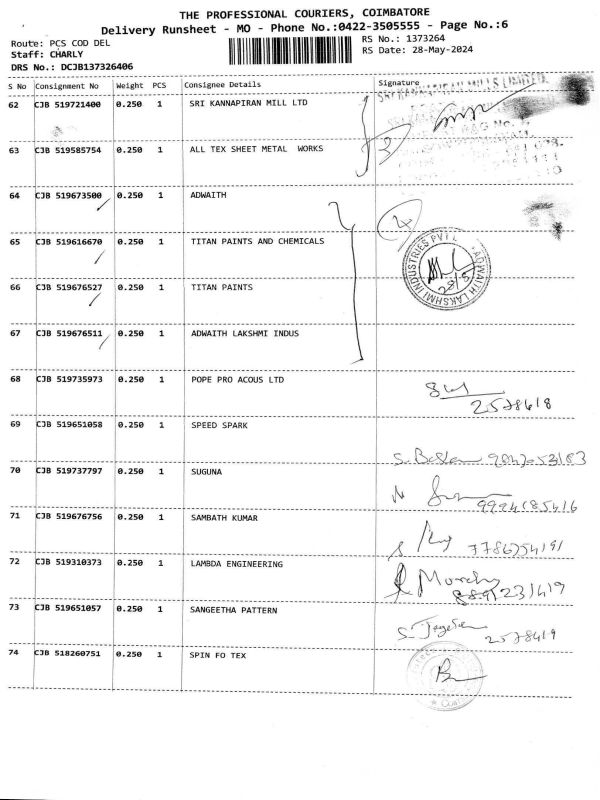 THE PROFESSIONAL COURIERS, COIMBATORE
Delivery Runsheet - MO - Phone No.:0422-3505555 - Page No.:6
Route: PCS COD DEL
RS No.: 1373264
Staff: CHARLY
RS Date: 28-May-2024
DRS No.: DCJB137326406
S No Consignment No Weight PCS Consignee Details Signature
62 CJB 519721400 0.250 1 SRI KANNAPIRAN MILL LTD
63 CJB 519585754 0.250 1 ALL TEX SHEET METAL WORKS
3
64 CJB 519673500 0.250 1 ADWAITH
4
65 CJB 519616670 0.250 1 TITAN PAINTS AND CHEMICALS
ADWAITH LAKSHMI INDUSTRIES PVT L
28/5
66 CJB 519676527 0.250 1 TITAN PAINTS
67 CJB 519676511 0.250 1 ADWAITH LAKSHMI INDUS
68 CJB 519735973 0.250 1 POPE PRO ACOUS LTD
2578618
69 CJB 519651058 0.250 1 SPEED SPARK
70 CJB 519737797 0.250 1 SUGUNA
9994185416
71 CJB 519676756 0.250 1 SAMBATH KUMAR
72 CJB 519310373 0.250 1 LAMBDA ENGINEERING
73 CJB 519651057 0.250 1 SANGEETHA PATTERN
2578419
74 CJB 518260751 0.250 1 SPIN FO TEX